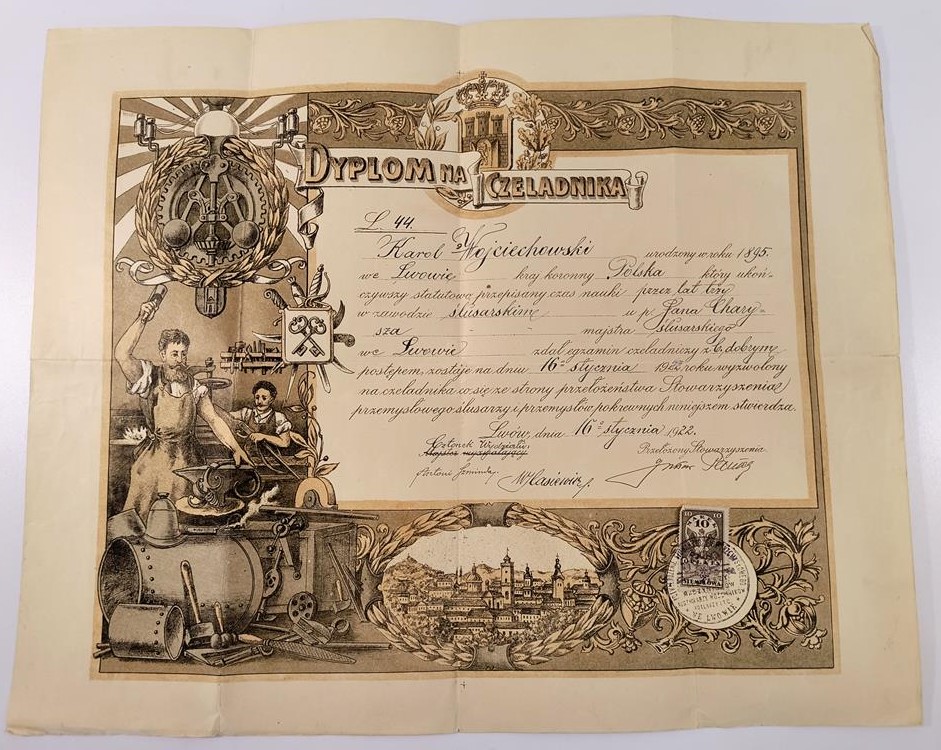 DYPLOM NA CZELADNIKA
L. 44.
Karol Wojciechowski urodzony w roku 1895.
we Lwowie kraj koronny Polska który ukoń-
czywszy statutowo przepisany czas nauki przez lat trzy
w zawodzie ślusarskim u p. Jana Chary-
sza - - - majstra ślusarskiego
we Lwowie zdał egzamin czeladniczy z b. dobrym
postępem, zostaje na dniu 16º stycznia 1922 roku wyzwolony
na czeladnika co się ze strony przełożeństwa Stowarzyszenia
przemysłowego ślusarzy i przemysłów pokrewnych niniejszem stwierdza.
Lwów, dnia 16º stycznia 1922.
Członek Wydziału Przełożony Stowarzyszenia
10 10
10
STEMPLOWA
WE LWOWIE